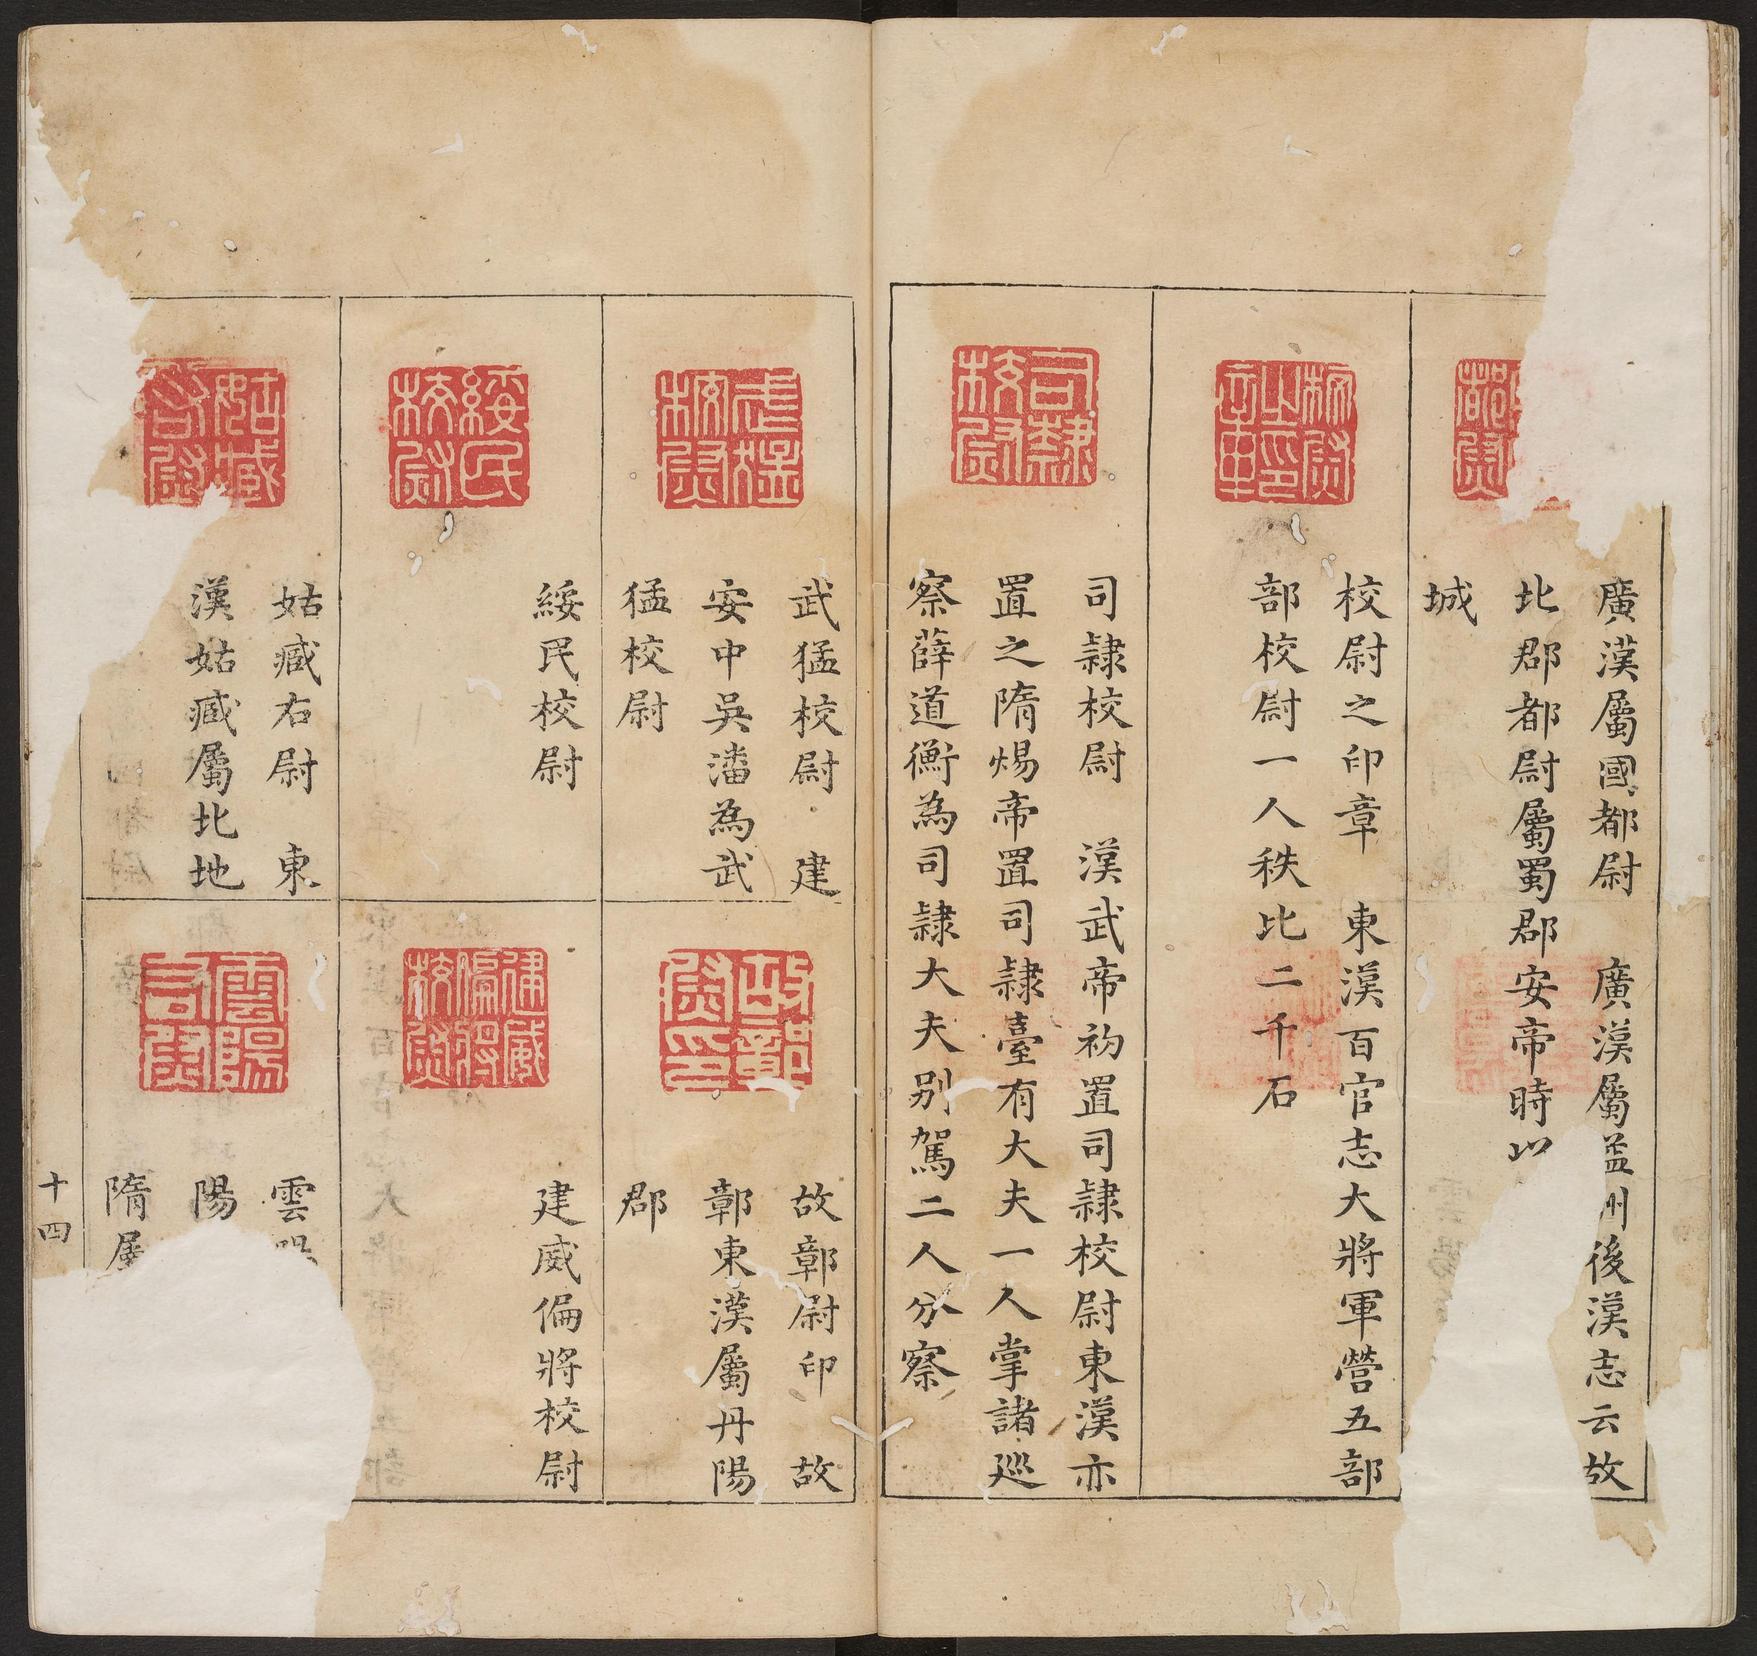 廣漢屬國都尉　廣漢屬益州後漢志云故
北郡都尉屬蜀郡安帝時以
城
校尉之印章　東漢百官志大將軍營五部
部校尉一人秩比二千石
司隸校尉
司隸校尉　漢武帝初置司隸校尉東漢亦
置之隋煬帝置司隸臺有大夫一人掌諸廵
察薛道衡為司隸大夫别駕二人分察
武猛校尉
武猛校尉　建
安中吳潘為武
猛校尉
故鄣尉印
故鄣尉印　故
鄣東漢屬丹陽
郡
綏民校尉
綏民校尉
建威偏將校尉
建威偏將校尉
姑臧右尉
姑臧右尉　東
漢姑臧屬北地
雲陽右尉
雲
陽
隋屬
十四